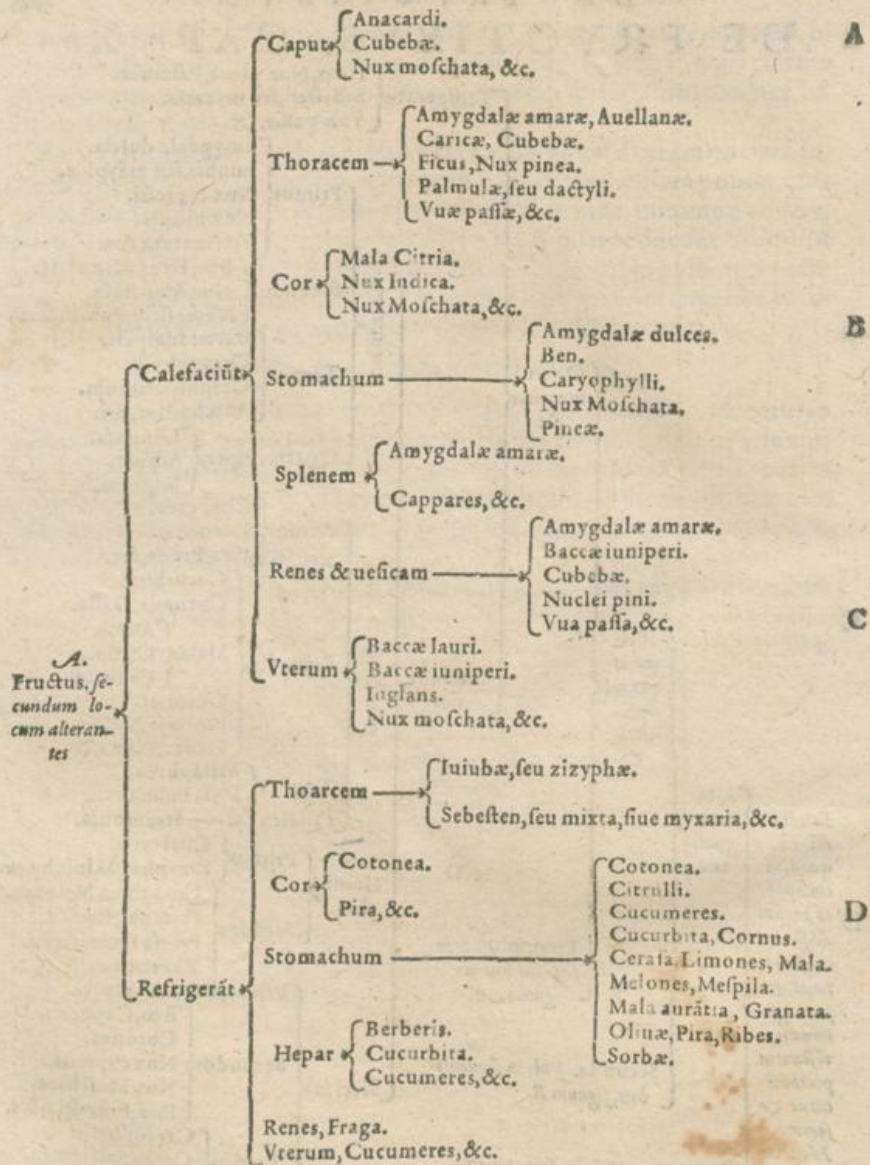 A
Caput
Anacardi.
Cubebæ.
Nux moſchata, &c.
Thoracem
Amygdalæ amaræ, Auellanæ.
Caricæ, Cubebæ.
Ficus, Nux pinea.
Palmulæ, ſeu dactyli.
Vuæ paſſæ, &c.
Cor
Mala Citria.
Nux Indica.
Nux Moſchata, &c.
B
Calefaciũt
Stomachum
Amygdalæ dulces.
Ben.
Caryophylli.
Nux Moſchata.
Pineæ.
Splenem
Amygdalæ amaræ.
Cappares, &c.
Renes & ueſicam
Amygdalæ amaræ.
Baccæ iuniperi.
Cubebæ.
Nuclei pini.
Vua paſſa, &c.
C
Vterum
Baccæ lauri.
Baccæ iuniperi.
Iuglans.
Nux moſchata, &c.
A.
Fructus. ſe-
cundum lo-
cum alteran-
tes
Thoarcem
Iuiubæ, ſeu zizyphæ.
Sebeſten, ſeu mixta, ſiue myxaria, &c.
Cor
Cotonea.
Pira, &c.
D
Refrigerãt
Stomachum
Cotonea.
Citrulli.
Cucumeres.
Cucurbita, Cornus.
Ceraſa, Limones, Mala.
Melones, Meſpila.
Mala aurãtia, Granata.
Oliuæ, Pira, Ribes.
Sorbæ.
Hepar
Berberis.
Cucurbita.
Cucumeres, &c.
Renes, Fraga.
Vterum, Cucumeres, &c.